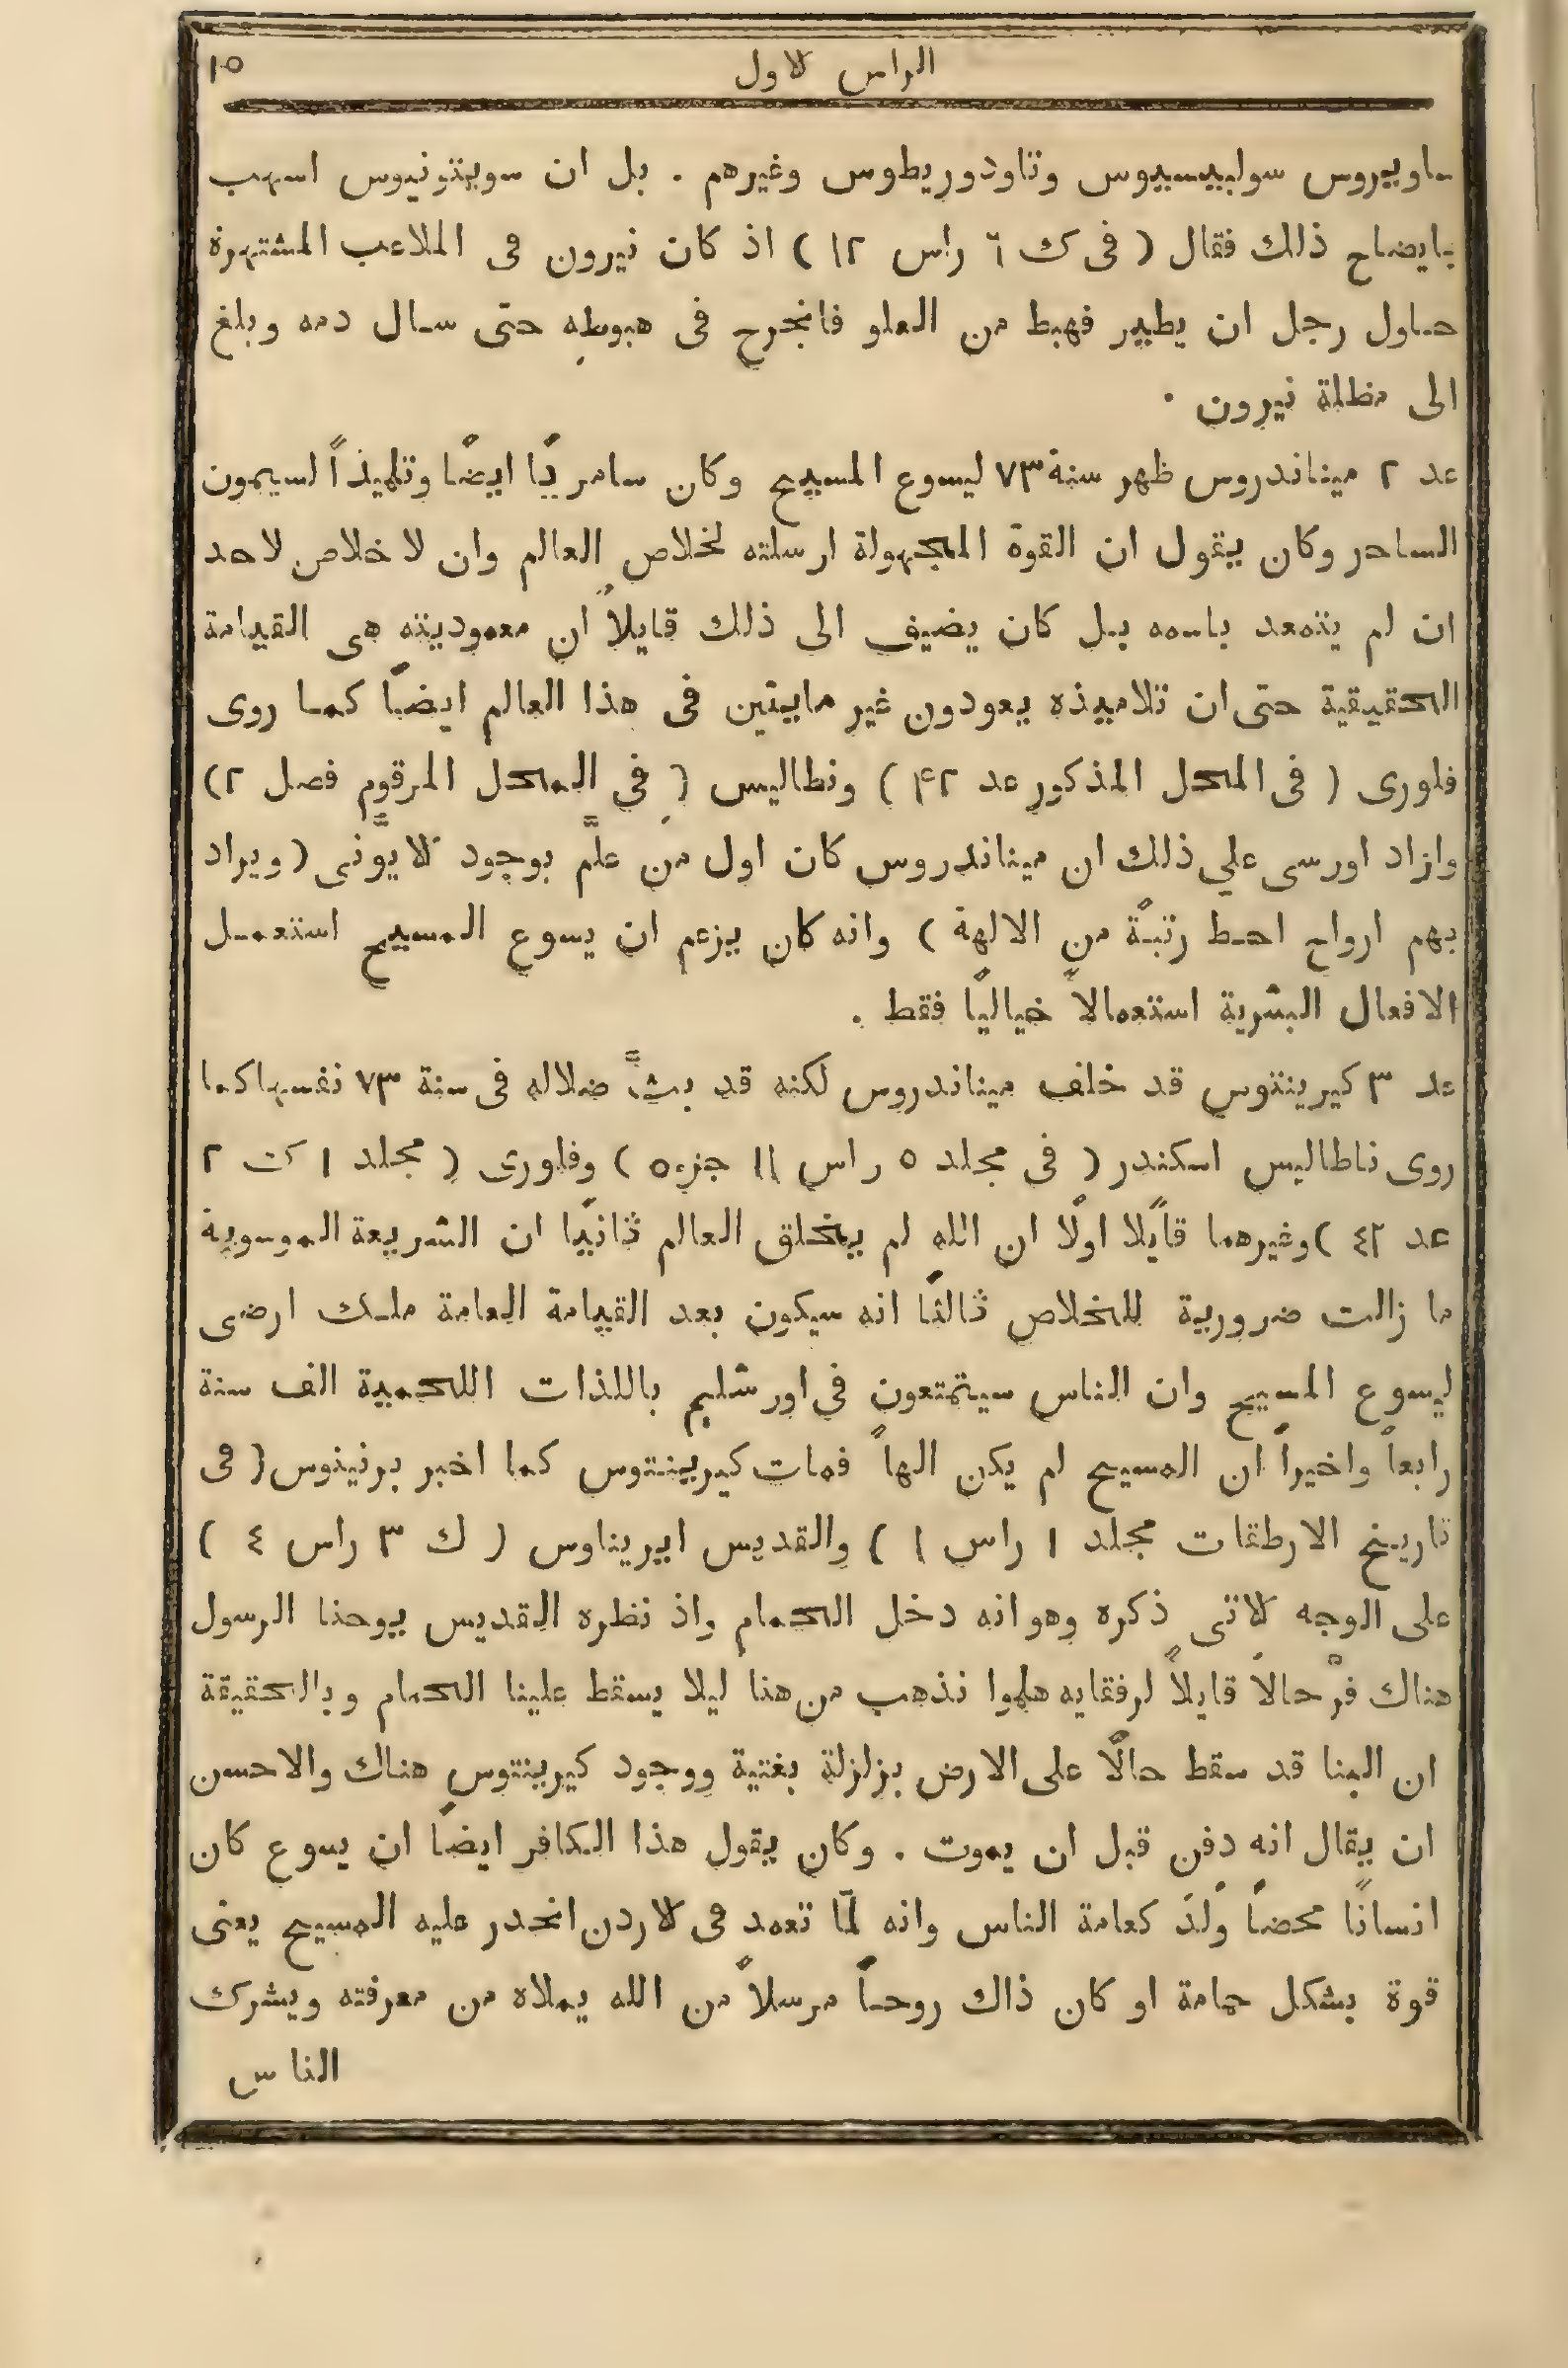 الراس الاول
١٥
ساويروس سولبيسيوس وتاودوريطوس وغيرهم . بل ان سويتونيوس اسهب
بايضاح ذلك فقال ( فى ك ٦ راس ١٢ ) اذ كان نيرون فى الملاعب المشتهرة
حاول رجل ان يطير فهبط من العلو فانجرح فى هبوطِه حتى سال دمه وبلغ
الى مظلة نيرون .
عد ٢ ميناندروس ظهر سنة ٧٣ ليسوع المسيح وكان سامريًا ايضًا وتلميذاً لسيمون
الساحر وكان يقول ان القوة المجهولة ارسلته لخلاص العالم وان لا خلاص لاحد
ان لم يتعمد باسمه بل كان يضيف الى ذلك قايلاً ان معموديته هى القيامة
الحقيقية حتى ان تلاميذه يعودون غير مايتين فى هذا العالم ايضًا كما روى
فلورى ( فى المحل المذكور عد ٤٢ ) ونطاليس ( فى المحل المرقوم فصل ٢ )
وازاد اورسى علي ذلك ان ميناندروس كان اول من علَّم بوجود الايوَّنى ( ويراد
بهم ارواح احط رتبةً من الالهة ) وانه كان يزعم ان يسوع المسيح استعمل
الافعال البشرية استعمالاً خياليًا فقط .
عد ٣ كيرينتوس قد خلف ميناندروس لكنه قد بثَّ ضلاله فى سنة ٧٣ نفسها كما
روى ناطاليس اسكندر ( فى مجلد ٥ راس ١١ جزء ٥ ) وفلورى ( مجلد ١ ك ٢
عد ٤٢ ) وغيرهما قايلًا اولًا ان الله لم يخلق العالم ثانيًا ان الشريعة الموسوية
ما زالت ضرورية للخلاص ثالثًا انه سيكون بعد القيامة العامة ملك ارضى
ليسوع المسيح وان الناس سيتمتعون فى اورشليم باللذات اللحمية الف سنة
رابعاً واخيراً ان المسيح لم يكن الهاً فمات كيرينتوس كما اخبر برنينوس ( فى
تاريخ الارطقات مجلد ١ راس ١ ) والقديس ايريناوس ( ك ٣ راس ٤ )
على الوجه الاتى ذكره وهو انه دخل الحمام واذ نظره القديس يوحنا الرسول
هناك فرَّ حالاً قايلاً لرفقايه هلموا نذهب من هنا ليلا يسقط علينا الحمام وبالحقيقة
ان البنا قد سقط حالًا على الارض بزلزلة بغتية ووجود كيرينتوس هناك والاحسن
ان يقال انه دفن قبل ان يموت . وكان يقول هذا الكافر ايضاً ان يسوع كان
انسانًا محضاً وُلدَ كعامة الناس وانه لمّا تعمد فى الاردن انحدر عليه المسيح يعنى
قوة بشكل حمامة او كان ذاك روحاً مرسلاً من الله يملاه من معرفته ويشرك
الناس